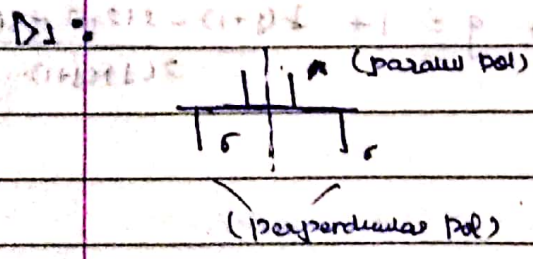 D1 :
π (parallel pol)
σ σ
(perpendicular pol)